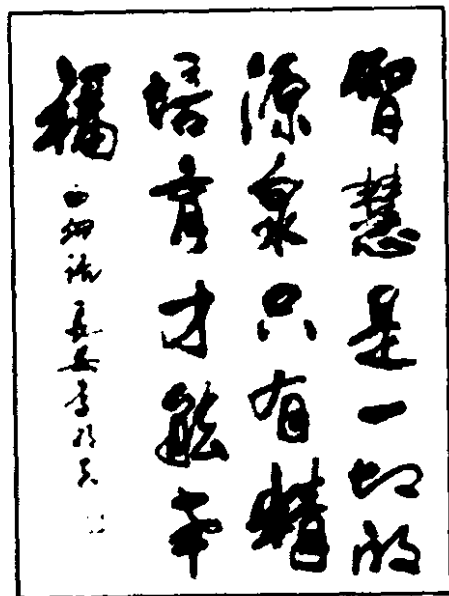 智慧是一切的
源泉只有精
培育才能幸
福
長安